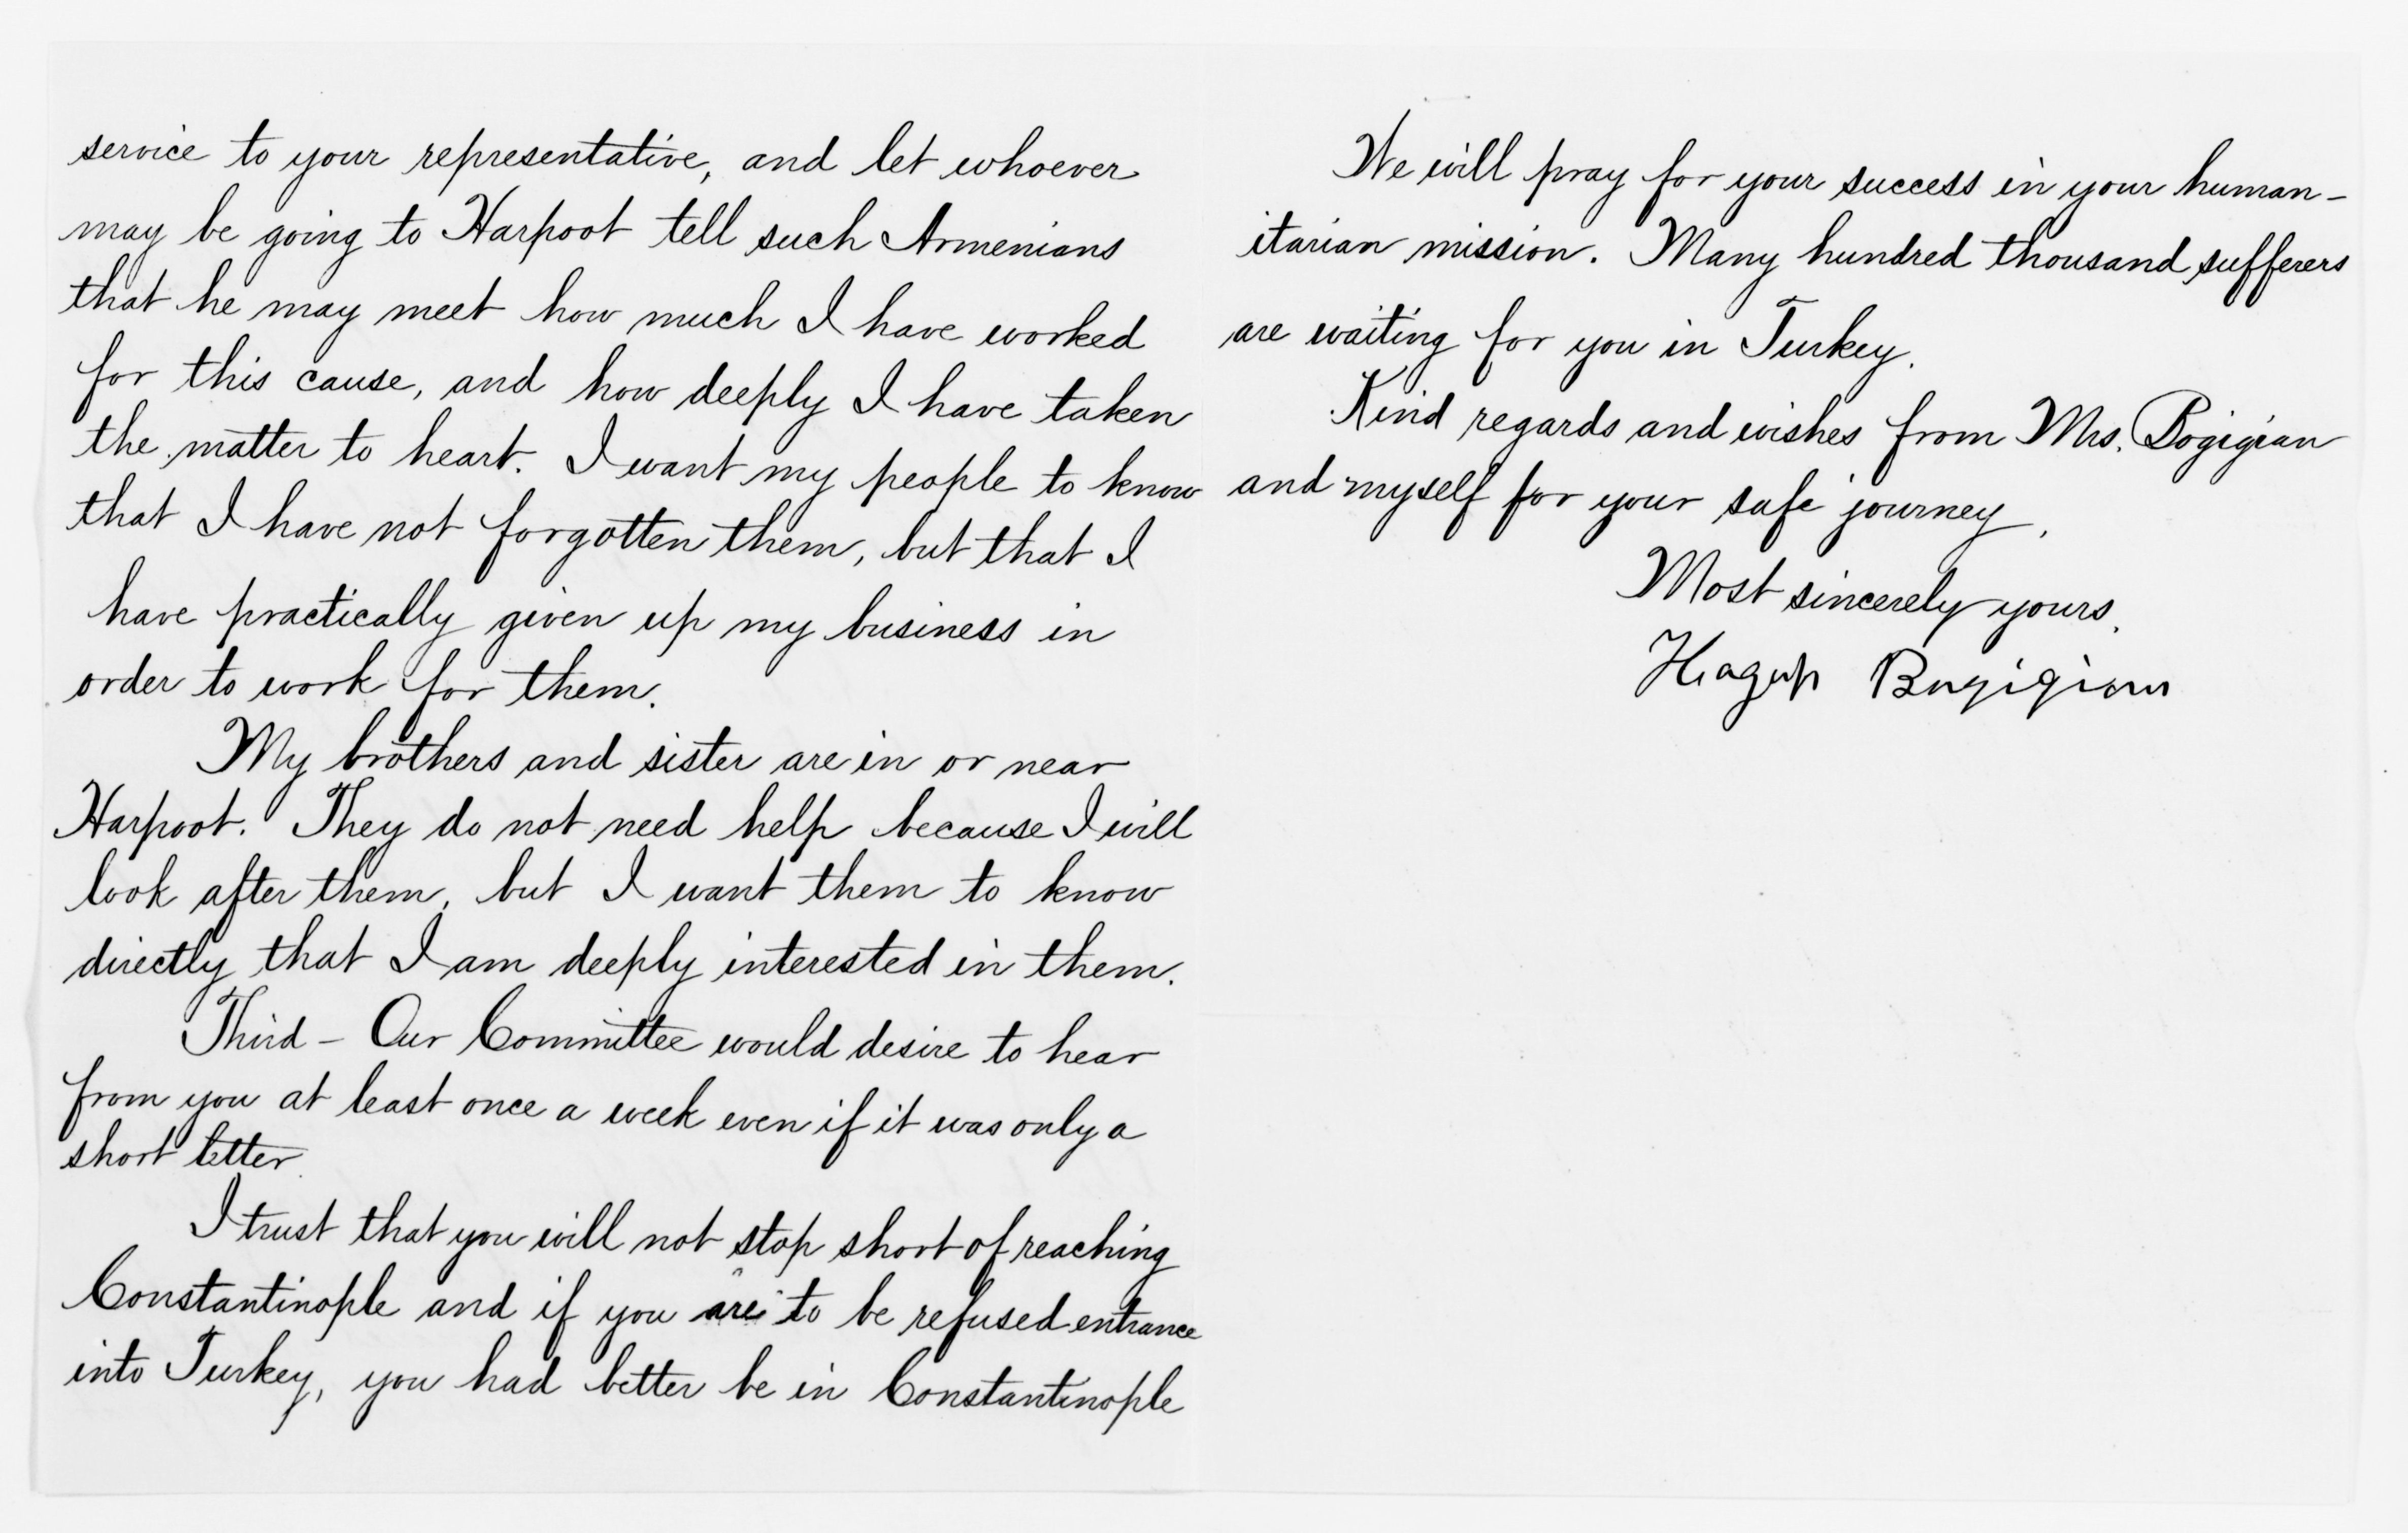 service to your representative, and let whoever
may be going to Harpoot tell such Armenians
that he may meet how much I have worked
for this cause, and how deeply I have taken
the matter to heart. I want my people to know
that I have not forgotten them, but that I
have practically given up my business in
order to work for them.
My brothers and sister are in or near
Harpoot. They do not need help because I will
look after them, but I want them to know
directly that I am deeply interested in them.
Third - Our Committee would desire to hear
from you at least once a week even if it was only a
short letter.
I trust that you will not stop short of reaching
Constantinople and if you are to be refused entrance
into Turkey, you had better be in Constantinople
We will pray for your success in your human-
itarian mission. Many hundred thousand sufferers
are waiting for you in Turkey.
Kind regards and wishes from Mrs. Bogigian
and myself for your safe journey.
Most sincerely yours,
Hagop Bogigian